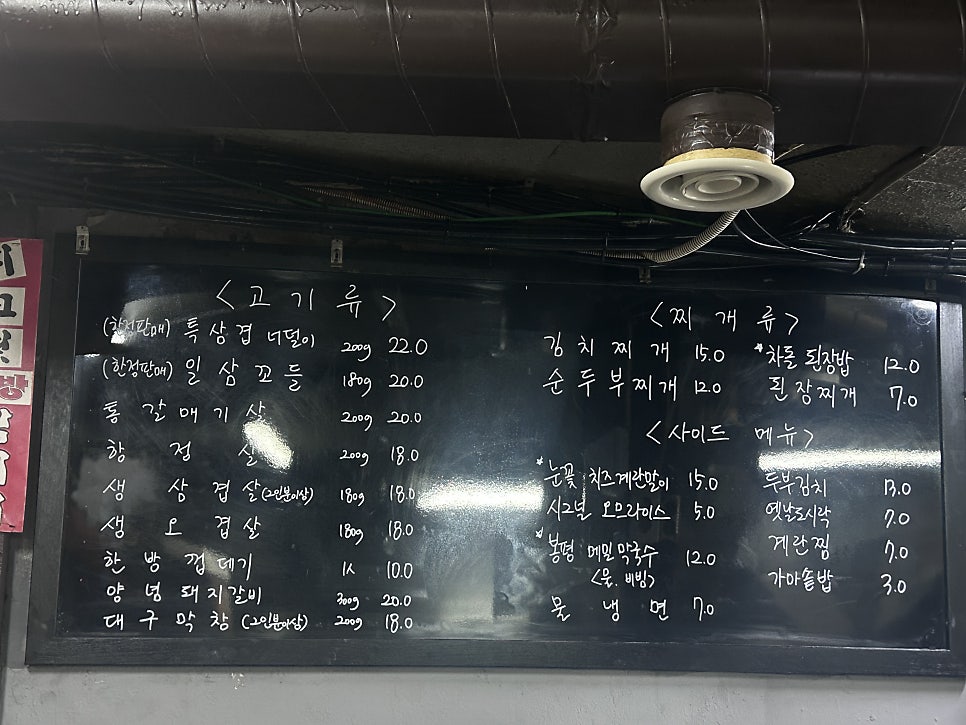 <고기류>
(한정판매) 특삼겹 너덜이 200g 22.0
(한정판매) 일삼꼬들 180g 20.0
통갈매기살 200g 20.0
항정살 200g 18.0
생삼겹살(2인분이상) 180g 18.0
생오겹살 180g 18.0
한방껍데기 10.0
양념돼지갈비 300g 20.0
대구막창 (2인분이상) 200g 18.0
<찌개류>
김치찌개 15.0
순두부찌개 12.0
*차돌 된장밥 12.0
된장찌개 7.0
<사이드 메뉴>
*눈꽃 치즈계란말이 15.0
시그널 오므라이스 5.0
*봉평 메밀막국수 12.0
<물, 비빔>
물냉면 7.0
두부김치 13.0
옛날도시락 7.0
계란찜 7.0
가마솥밥 3.0